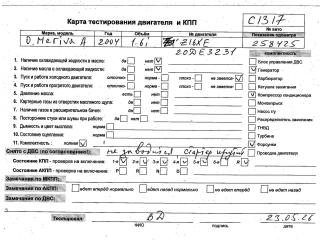 Карта тестирования двигателя и КПП
С1317
№ авто
Марка, модель Год Объём № двигателя Показание одометра
O. Meriva A 2004 1.6i Z16XE 258425
20DE3231
1. Наличие охлаждающей жидкости в масле: да нет
2. Наличие масла в охлаждающей жидкости: да нет
3. Пуск и работа холодного двигателя: отлично норма плохо не завелся
4. Пуск и работа прогретого двигателя: отлично норма плохо
5. Давление масла: есть нет
6. Картерные газы из отверстия масляного щупа: да нет
7. Наличие газов в расширительном бачке: да нет
8. Посторонние стуки или шумы при работе: да нет
9. Дымность и цвет выхлопа: норма
10. Состояние сцепления: норма
11. Комплектность: полная
комплектность
Блок управления ДВС
Генератор
Карбюратор
Катушки зажигания
Компрессор кондиционера
Моновпрыск
Насос ГУ
Распределитель зажигания
ТНВД
Турбина
Форсунки
Проводка двигателя
Снято с ДВС (по согласованию): не заводился стартер крутит
Состояние КПП - проверка на включение: 1-я 2-я 3-я 4-я 5-я 6-я R
Состояние АКПП - проверка на включение: P R N D
Замечания по МКПП:
Замечания по АКПП: едет вперёд нормально едет назад нормально не едет вперёд не едет назад
Замечания по ДВС:
Тестировал ВД 23.05.26
ФИО подпись дата